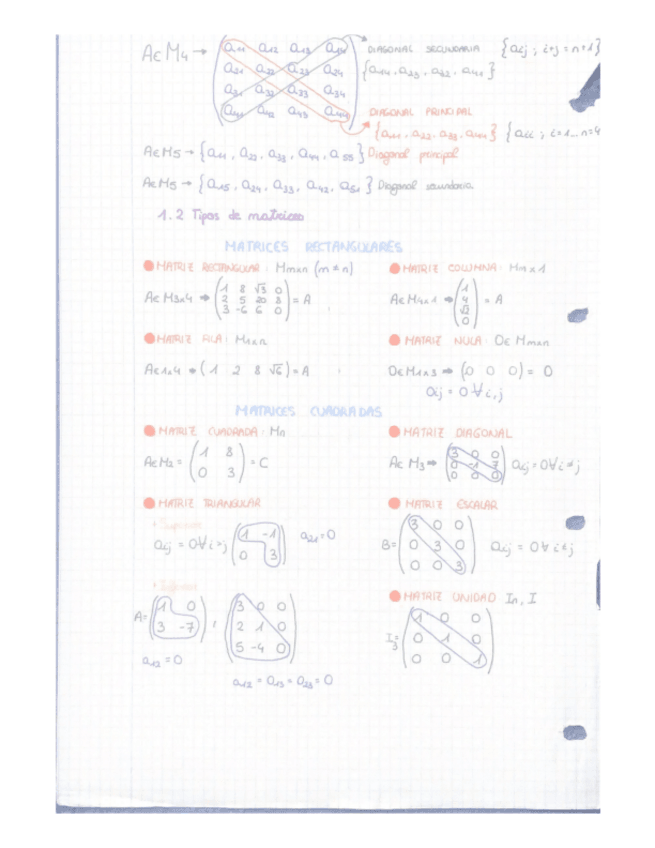 A∈M4 → ( a11 a12 a13 a14 DIAGONAL SECUNDARIA {aij ; i+j = n+1}
a21 a22 a23 a24 {a14, a23, a32, a41}
a31 a32 a33 a34
a41 a42 a43 a44 ) DIAGONAL PRINCIPAL
{a11, a22, a33, a44} {aii ; i=1... n=4
A∈M5 → {a11, a22, a33, a44, a55} Diagonal principal
A∈M5 → {a15, a24, a33, a42, a51} Diagonal secundaria
1.2 Tipos de matrices
MATRICES RECTANGULARES
MATRIZ RECTANGULAR: Mmxn (m ≠ n)
A∈M3x4 → ( 1 8 √3 0
2 5 20 8
3 -6 6 0 ) = A
MATRIZ COLUMNA: Mmx1
A∈M4x1 → ( 1
4
√2
0 ) = A
MATRIZ FILA: M1xn
A∈1x4 → ( 1 2 8 √6 ) = A
MATRIZ NULA: O∈ Mmxn
O∈M1x3 → (0 0 0) = O
aij = 0 ∀ i,j
MATRICES CUADRADAS
MATRIZ CUADRADA: Mn
A∈M2 = ( 1 8
0 3 ) = C
MATRIZ DIAGONAL
A∈ M3 → ( 3 0 0
0 -1 0
0 0 0 ) aij = 0 ∀ i ≠ j
MATRIZ TRIANGULAR
· Superior
aij = 0 ∀ i > j ( 1 -1
0 3 ) a21 = 0
· Inferior
A = ( 1 0
3 -7 ) , ( 3 0 0
2 1 0
5 -4 0 )
a12 = 0
a12 = a13 = a23 = 0
MATRIZ ESCALAR
B = ( 3 0 0
0 3 0
0 0 3 ) aij = 0 ∀ i ≠ j
MATRIZ UNIDAD In, I
I3 = ( 1 0 0
0 1 0
0 0 1 )